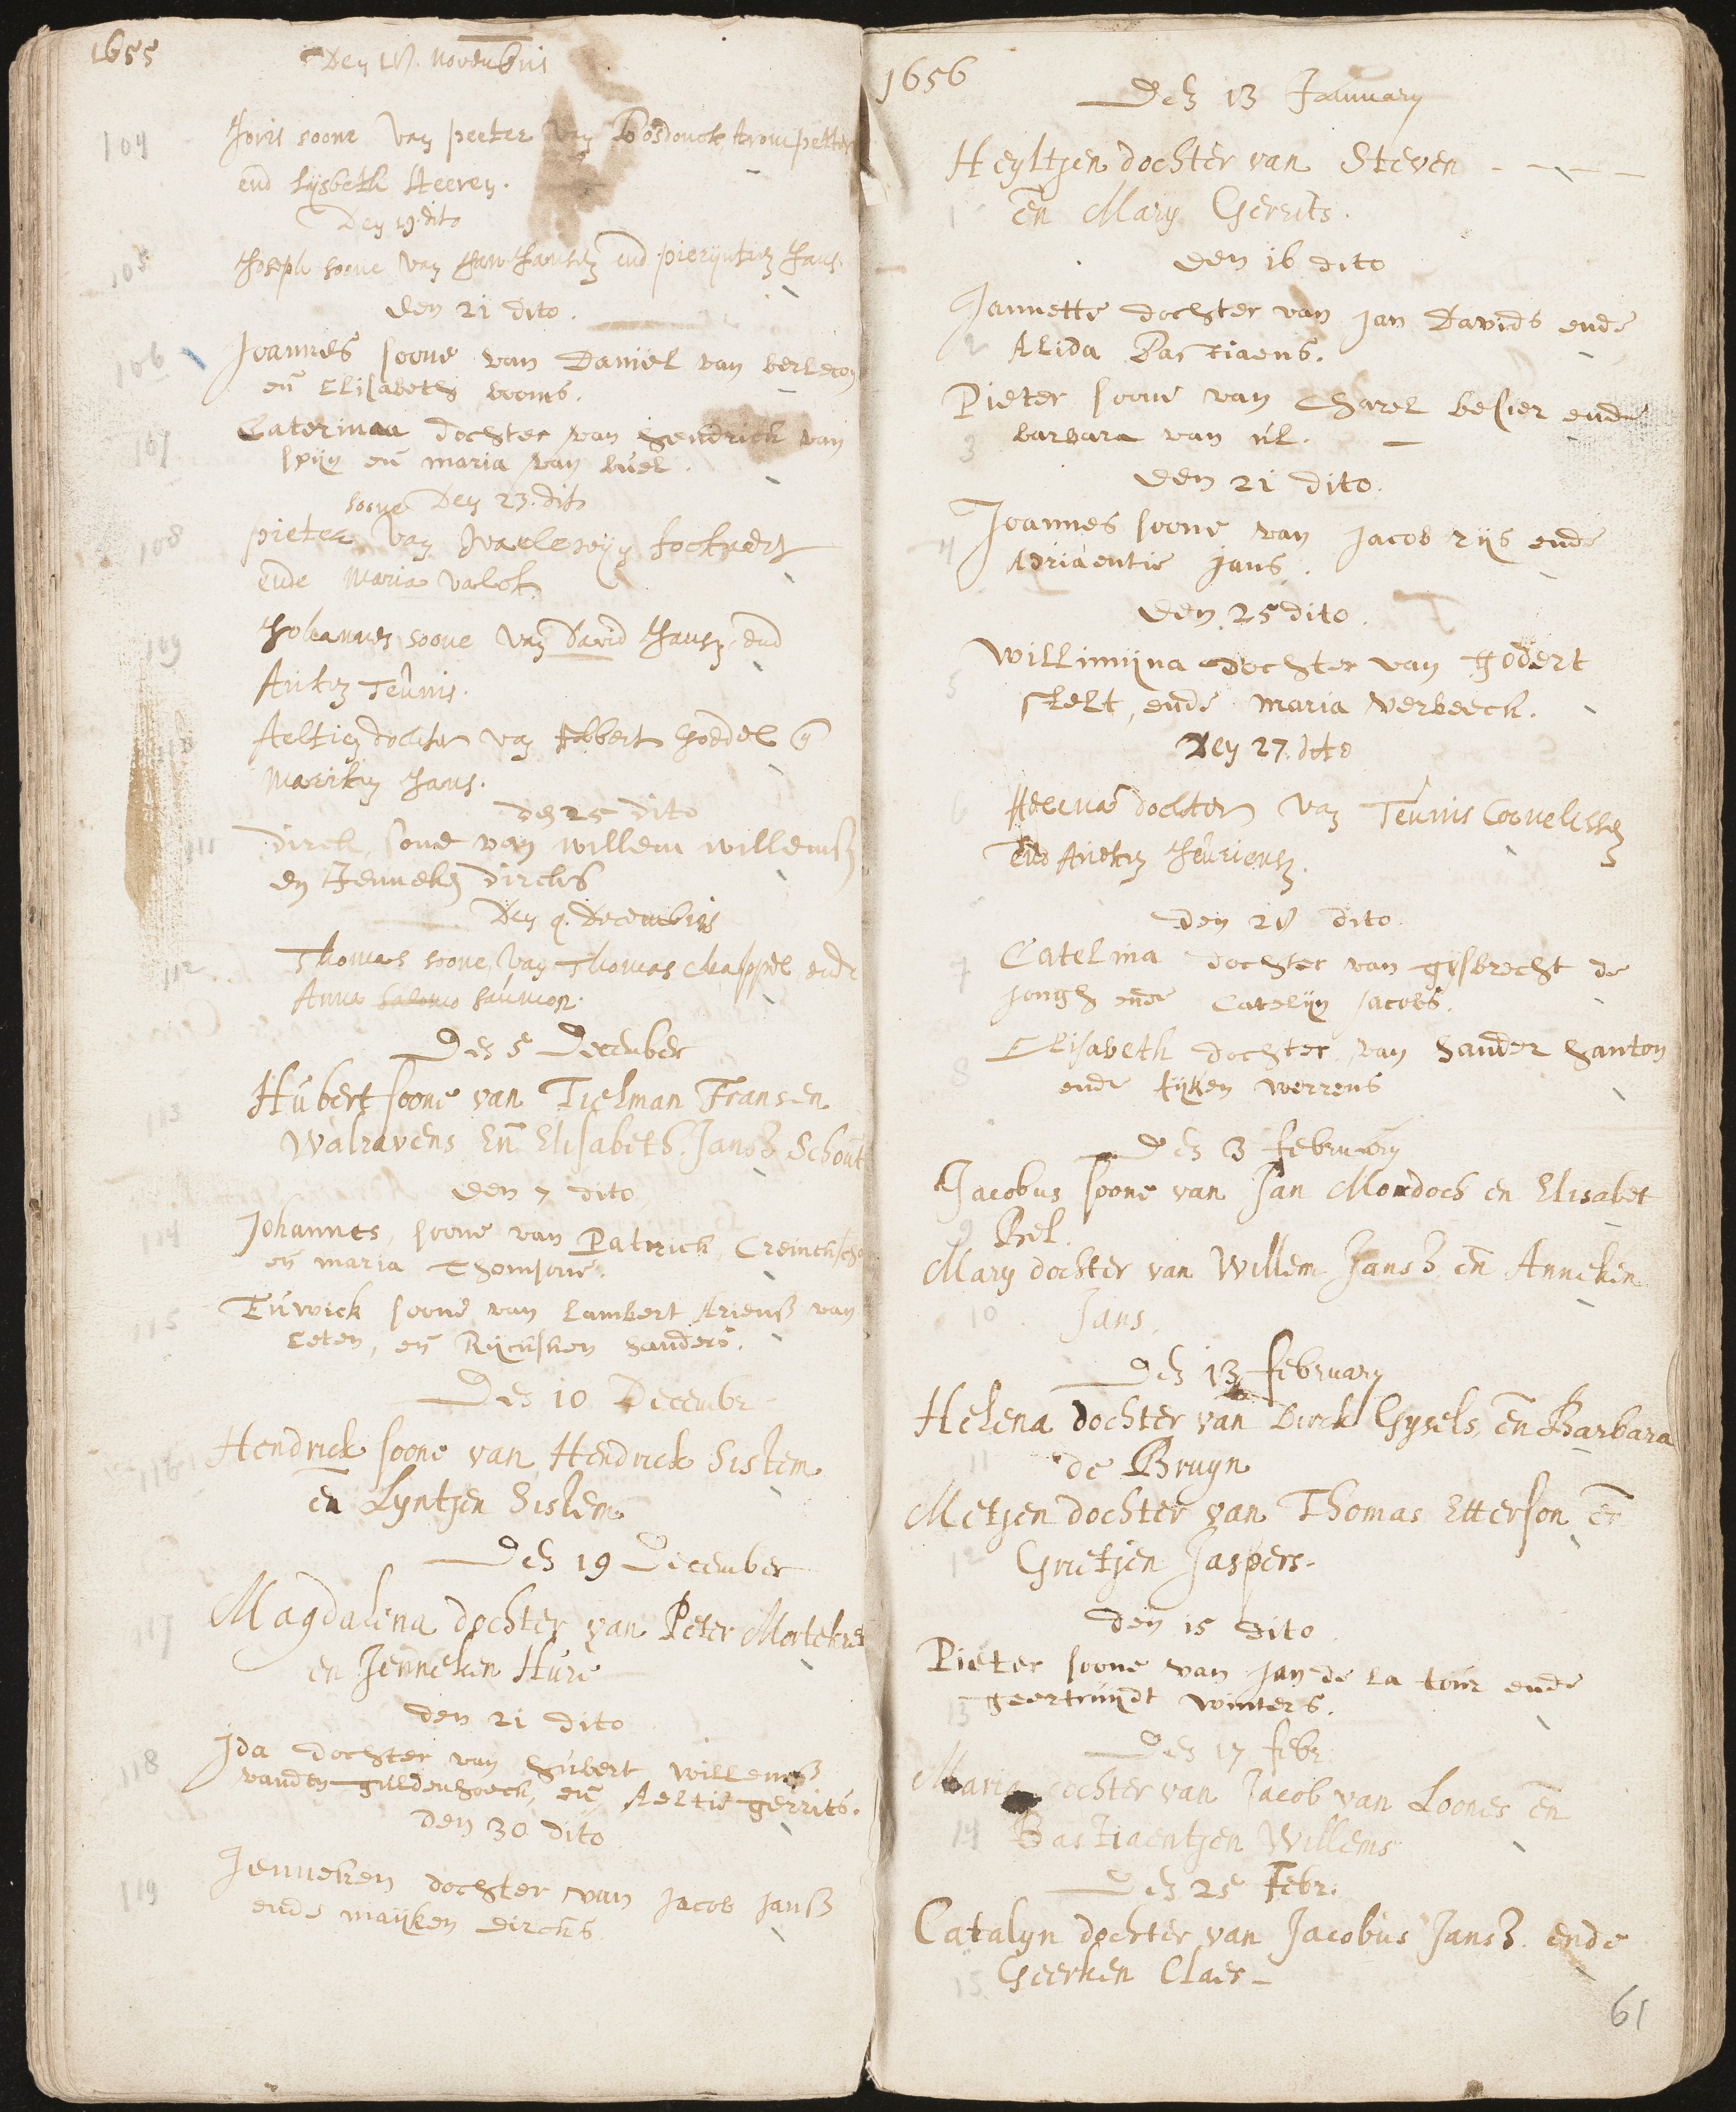 1655
Den 18. Novembris
104
Joris soone van peeter van Bosdonck trompetter
end Lijsbeth Heeren.
Den 19 dito
105
Joseph soone van Jan Jansz end pierijntien Jans.
den 21 dito.
106
Joannes soone van Daniel van
en Elisabeth booms.
107
Caterinaa dochter van Hendrick van
spijn en maria van buel.
soone Den 23. dito
108
pieter van
ende Maria
109
Johannes soone van David Jansz end
Anken Teunis.
110
Aeltien dochter van Robbert
Marriken Jans.
den 25 dito
111
dirck, sone van willem willemsz
en Jenneken dircks
Den 4. Decembris
112
Thomas soone van Thomas Chappel ende
Anna Salomo Saumon.
Den 5 December
113
Hubert soone van Tielman Fransen
Walravens En Elisabeth Jansz Schout
den 7 dito
114
Johannes, soone van Patrick,
en maria Thomsone.
115
Luwick soone van Lambert Ariensz van
Leten, en Rijcksken Sanders.
Den 10 Decembr
116
Hendrick soone van Hendrick Sislem
en Lyntjen Sislem
Den 19 December
117
Magdalena dochter van Peter
en Jenneken Hure
den 21 dito
118
Ida dochter van Hubert willemsz
vanden guldenhoeck, en Aeltie gerrits.
den 30 dito
119
Jenneken dochter van Jacob Jansz
ende maijken dircks
1656
Den 13 January
Heyltjen dochter van Steven - - - -
1
en Mary Gerrits.
den 16 dito
Jannette dochter van Jan Davids ende
2
Alida Bastiaens.
Pieter soone van Charel besier ende
3
barbara van ul.
den 21 dito.
Joannes soone van Jacob rijs ende
4
Adriaentie Jans.
den 25 dito.
Willimijna dochter van Godert
5
stelt, ende maria verbeeck.
Den 27. dito
6
dochter van Teunis Cornelissen
End Aneken Jeuriensz.
den 28 dito.
7
Catelina dochter van gijsbrecht de
Jongh ende Catelijn Jacobs.
Elisabeth dochter van Sander Santon
8
ende tijken werrens
Den 3 february
Jacobus soone van Jan Mordoch en Elisabet
9
Bel.
Mary dochter van Willem Jansz en Anneken
10
Jans.
Den 13 february
Helena dochter van Dirck Gysels, en Barbara
11
de Bruyn
Metjen dochter van Thomas Etterson en
12
Grietjen Jaspers.
den 15 dito
Pieter soone van Jan de la tour ende
13
geertruijdt winters.
Den 17 febr.
Maria dochter van Jacob van Loones en
14
Bastiaentjen Willems
Den 25 Febr.
Catalyn dochter van Jacobus Jansz. ende
15
Geerken Claes -
61